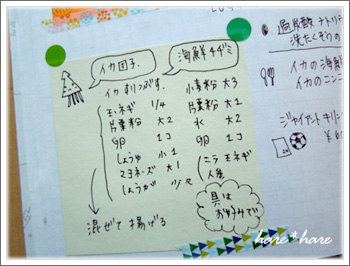 イカ団子
イカすりつぶす。
玉ネギ 1/4
片栗粉 大2
卵 1コ
しょうゆ 小1
マヨネーズ 大1
しょうが 少々
混ぜて揚げる
海鮮チヂミ
小麦粉 大3
片栗粉 大1
水 大2
卵 1コ
ニラ 玉ネギ
人参
具は
お好みで
過炭酸ナトリ
洗たくそうの
イカの海鮮
イカのニンニ
ジャイアントキリン
¥6
hare*hare